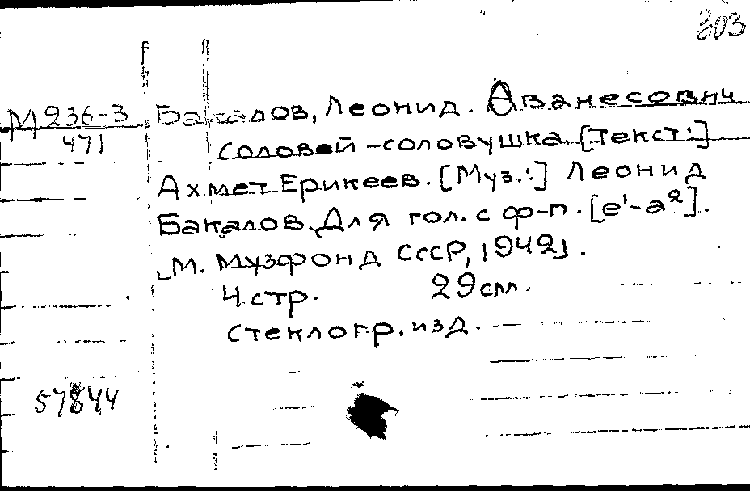 303
М 936-3 Бакалов, Леонид. Ованесович
471 Соловей-соловушка [Текст:]
Ахмет Ерикеев. [Муз.:] Леонид
Бакалов. Для гол. с ф-п. [e¹-a²].
[М. Музфонд СССР, 1942].
4 стр. 29 см.
Стеклогр. изд.
57844